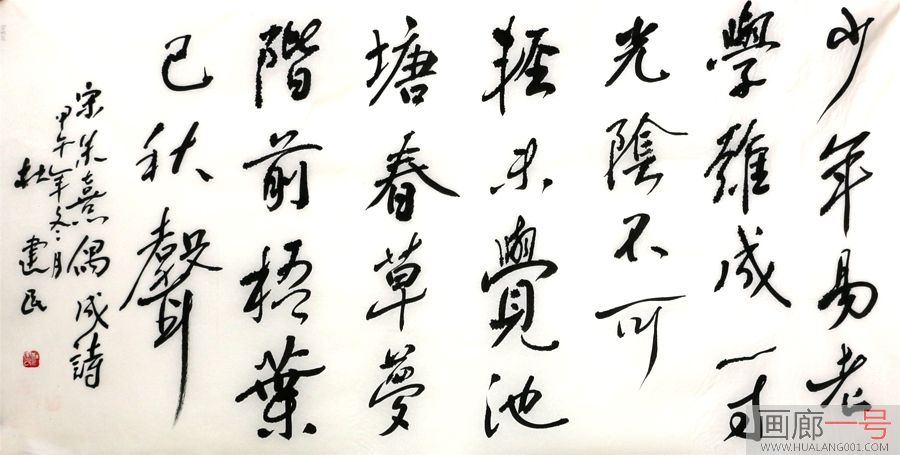 少年易老
學難成一寸
光陰不可
輕未覺池
塘春草夢
階前梧葉
已秋聲
宋朱熹偶成詩
甲午年冬月
杜建民
画廊一号
WWW.HUALANG001.COM